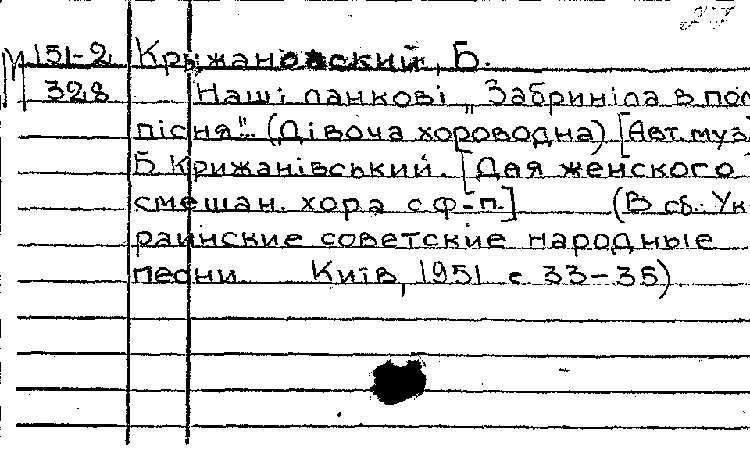 27
М 151-2 Крыжановский, Б.
328 Наші ланкові „Забриніла в пол
пісня".. (Дівоча хороводна) [Авт. муз
Б. Крижанівський. [Для женского
смешан. хора с ф-п.] (В сб.: Ук-
раинские советские народные
песни Київ, 1951 с 33-35)